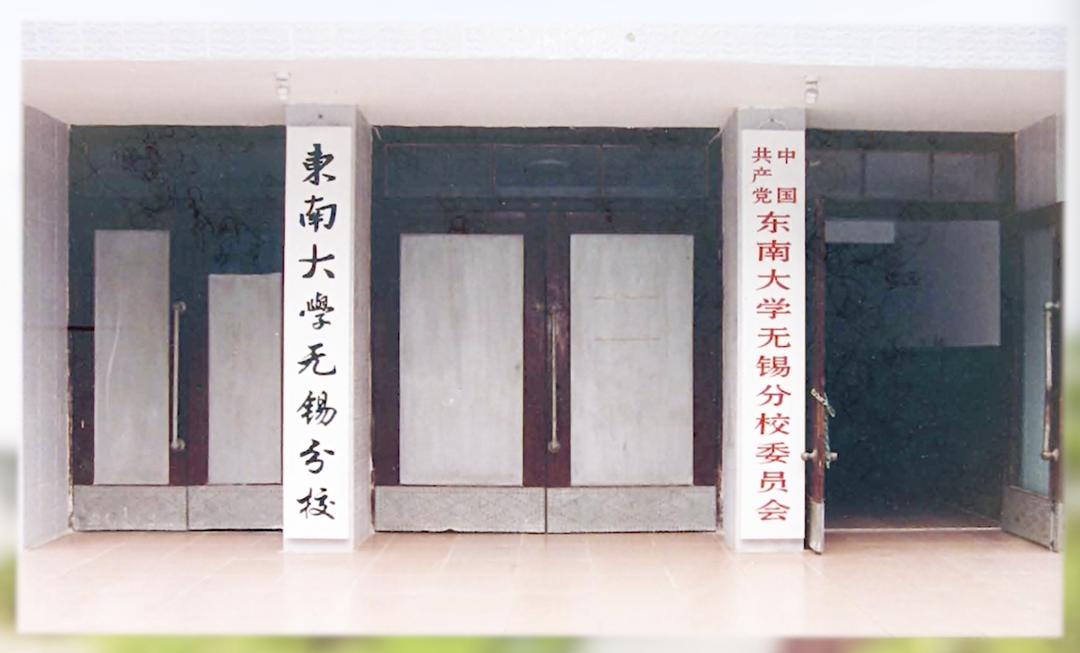 東南大學无锡分校
中国
共产党
东南大学无锡分校委员会